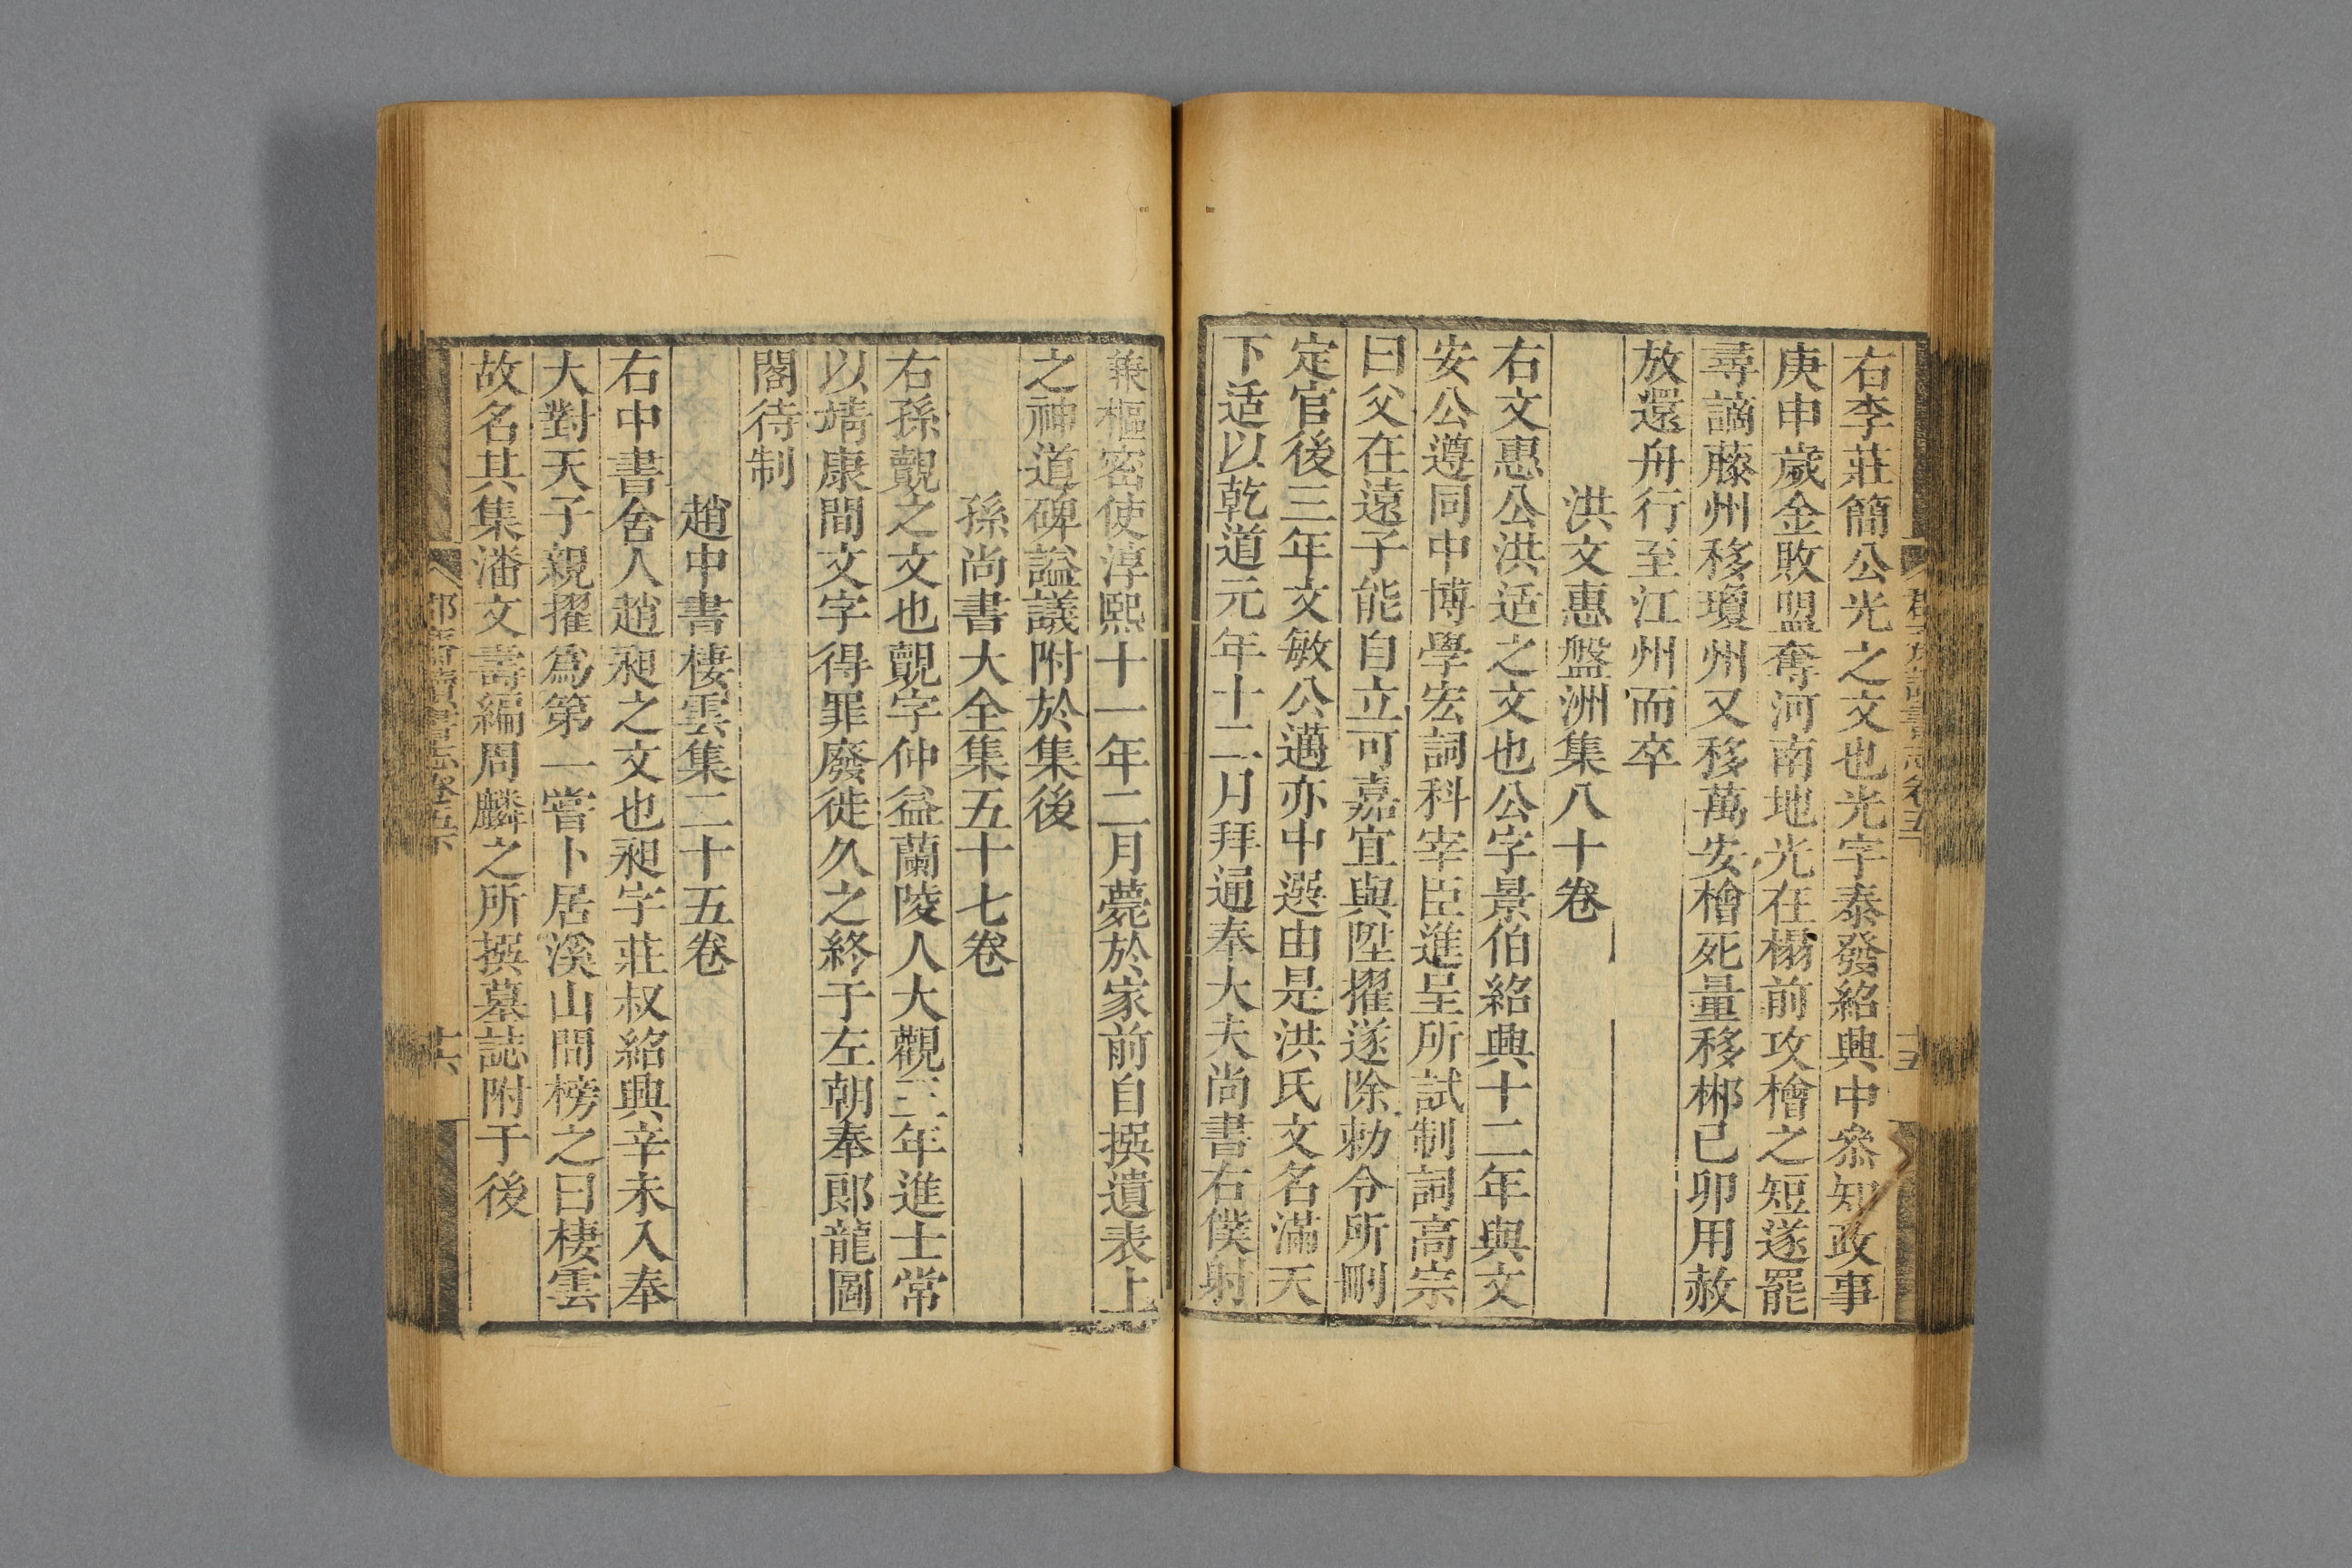 右李莊簡公光之文也光字泰發紹興中叅知政事
庚申歲金敗盟奪河南地光在榻前攻檜之短遂罷
尋謫藤州移瓊州又移萬安檜死量移郴己卯用赦
放還舟行至江州而卒
洪文惠盤洲集八十卷
右文惠公洪适之文也公字景伯紹興十二年與文
安公遵同中博學宏詞科宰臣進呈所試制詞高宗
曰父在遠子能自立可嘉宜與陞擢遂除勑令所刪
定官後三年文敏公邁亦中選由是洪氏文名滿天
下适以乾道元年十二月拜通奉大夫尚書右僕射
兼樞密使淳熙十一年二月薨於家前自撰遺表上
之神道碑謚議附於集後
孫尚書大全集五十七卷
右孫覿之文也覿字仲益蘭陵人大觀三年進士常
以靖康間文字得罪廢徙久之終于左朝奉郎龍圖
閣待制
趙中書棲雲集二十五卷
右中書舍人趙之文也字莊叔紹興辛未入奉
大對天子親擢為第一嘗卜居溪山間榜之曰棲雲
故名其集潘文壽編周麟之所撰墓誌附于後
十六